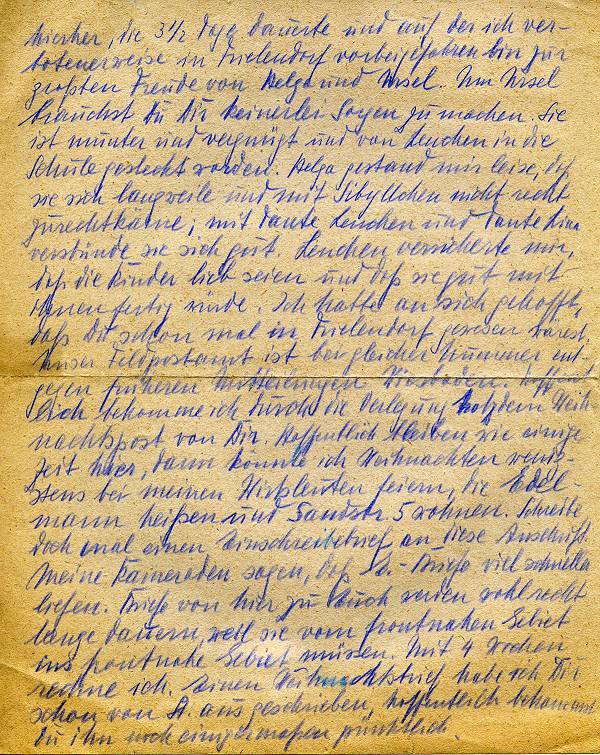 hierher, die 3 1/2 Tage dauerte und auf der ich ver-
botenerweise in Frielendorf vorbeigefahren bin zur
größten Freude von Helga und Ursel. Um Ursel
brauchst Du Dir keinerlei Sorgen zu machen. Sie
ist munter und vergnügt und von Lenchen in die
Schule gesteckt worden. Helga gestand mir leise, daß
sie sich langweile und mit Sibyllchen nicht recht
zurechtkäme; mit Tante Lenchen und Tante Lina
verstünde sie sich gut. Lenchen versicherte mir,
daß die Kinder lieb seien und daß sie gut mit
ihnen fertig würde. Ich hatte an sich gehofft,
daß Du schon mal in Frielendorf gewesen wärest.
Unser Feldpostamt ist bei gleicher Nummer ent-
gegen früheren Mitteilungen Wiesbaden. Hoffent-
lich bekomme ich durch die Verlegung trotzdem Weih-
nachtspost von Dir. Hoffentlich bleiben wir einige
Zeit hier, dann könnte ich Weihnachten wenig-
stens bei meinen Wirtsleuten feiern, die Edel-
mann heißen und Sandstr. 5 wohnen. Schreibe
doch mal einen Einschreibebrief an diese Anschrift.
Meine Kameraden sagen, daß E.-Briefe viel schneller
liefen. Briefe von hier zu Euch werden wohl recht
lange dauern, weil sie vom frontnahen Gebiet
ins frontnahe Gebiet müssen. Mit 4 Wochen
rechne ich. Einen Weihnachtsbrief habe ich Dir
schon von A. aus geschrieben, hoffentlich bekommst
Du ihn noch einigermaßen pünktlich.